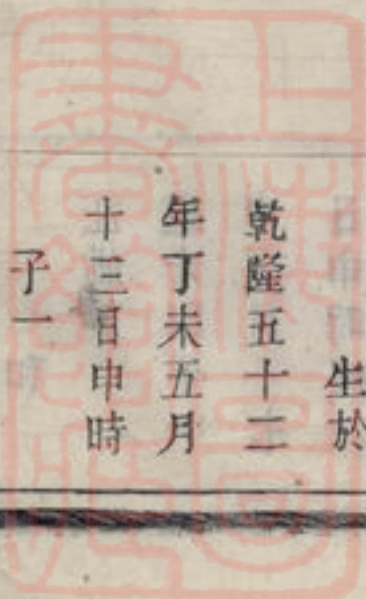 生於
乾隆五十二
年丁未五月
十三日申時
子一